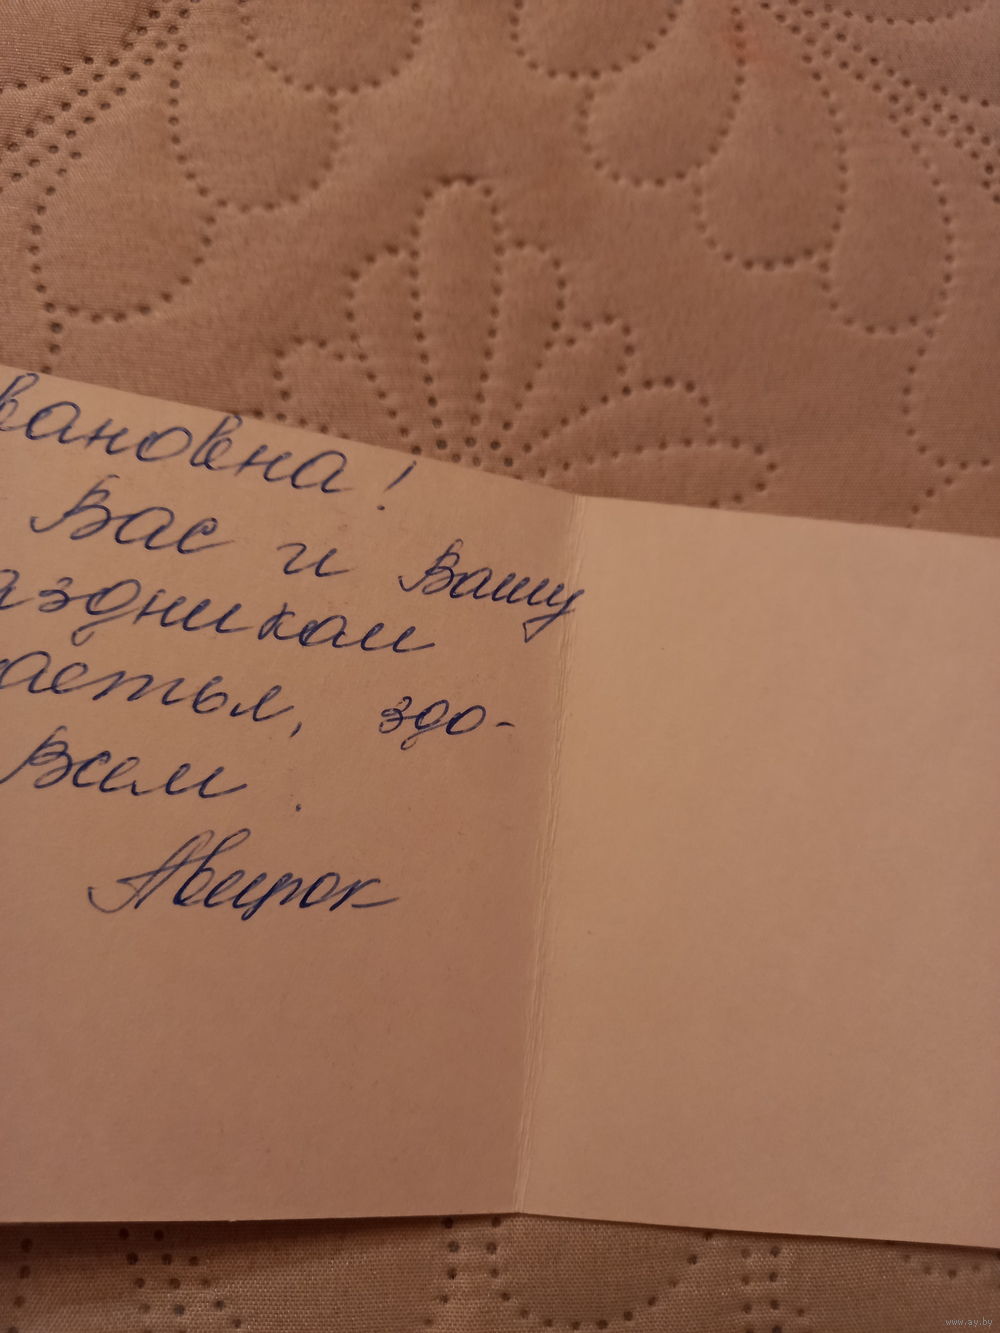 вановна!
Вас и Вашу
аздником
частья, здо-
Всем.
Авирок
www.ay.by